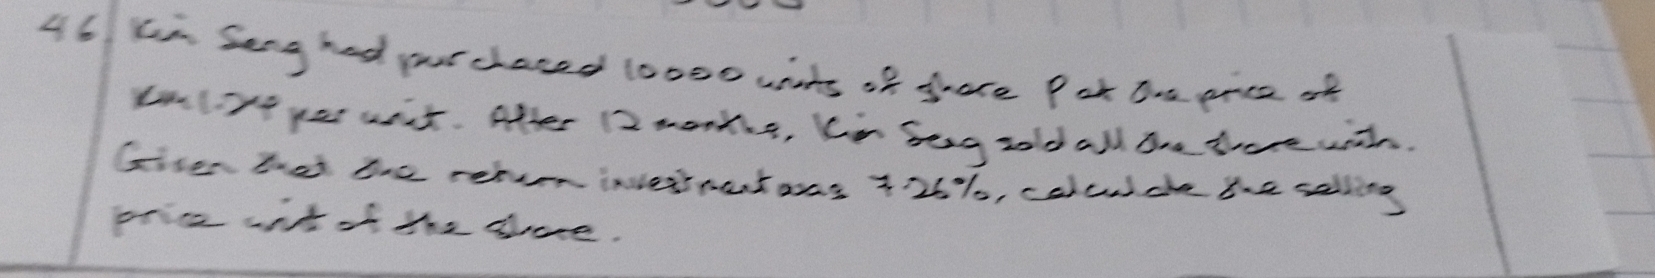 46 Kim Seng had purchased 10000 units of share P at the price of
per unit. After 12 months, Kim Seng sold all the share units.
Given that the return investment was 7.26%, calculate the selling
price unit of the share.